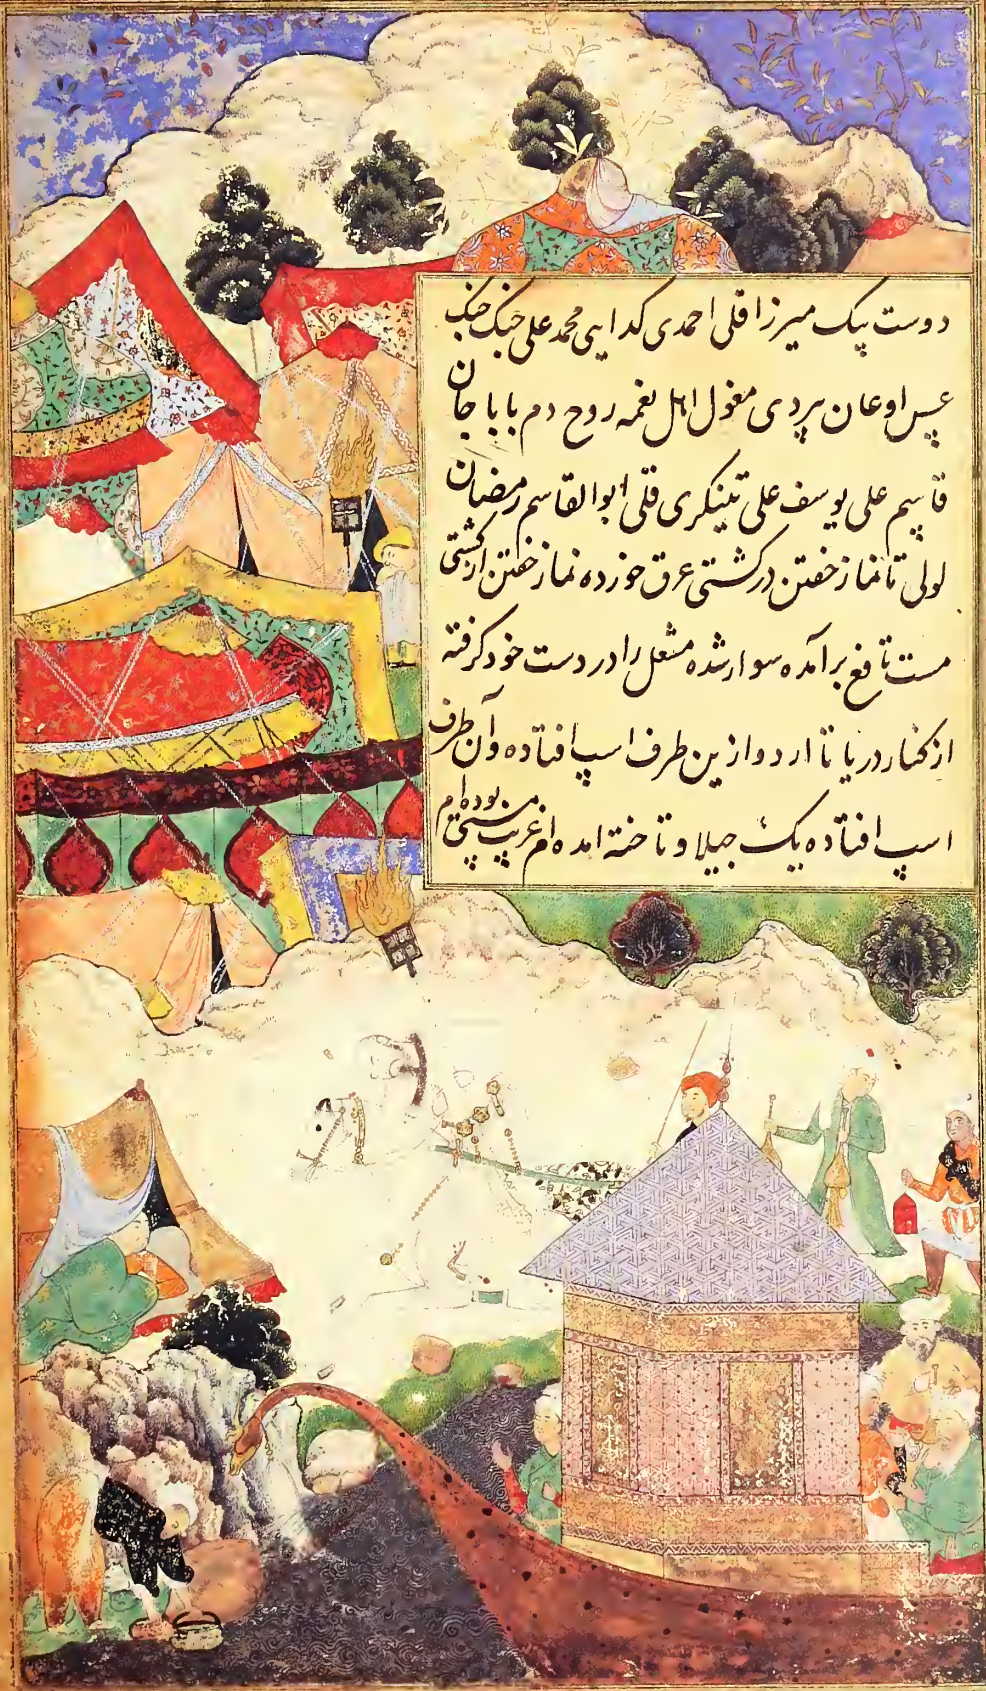 دوست بیک میرزا قلی احمدی کدایی محمد علی جنک جنک
عسس اوغان بردی مغول اهل نغمه روح دم بابا جان
قاسم علی یوسف علی تینکری قلی ابوالقاسم رمضان
لولی تا نماز خفتن در کشتی عرق خورده نماز خفتن از کشتی
مست تافع برآمده سوار شده مشعل را در دست خود کرفته
از کنار دریا تا اردو ازین طرف اسپ افتاده و آن طرف
اسپ افتاده یک جیلاو تاخته امده ام غریب مستی بوده ام